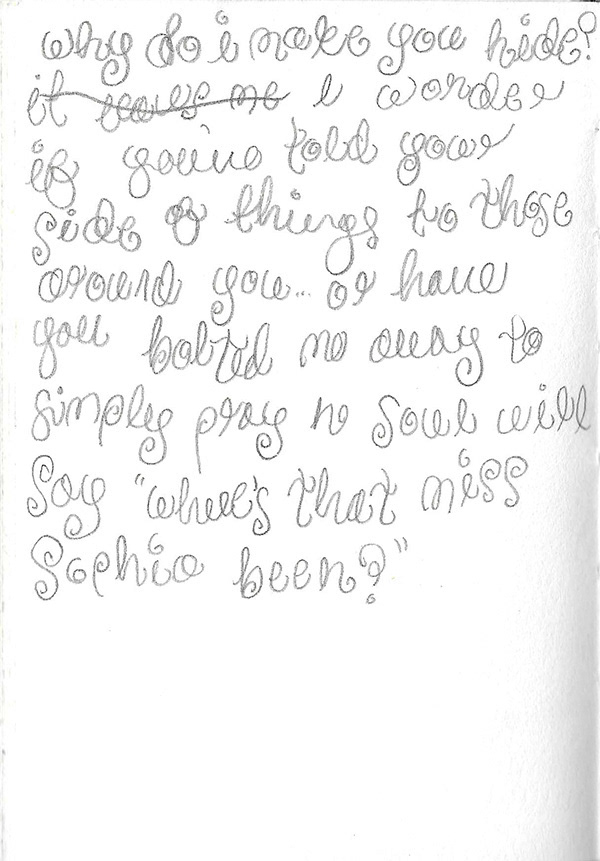 why do i make you hide?
it leaves me I wonder
if you've told your
side of things to those
around you... or have
you bolted me away to
simply pray no soul will
say "where's that miss
Sophia been?"